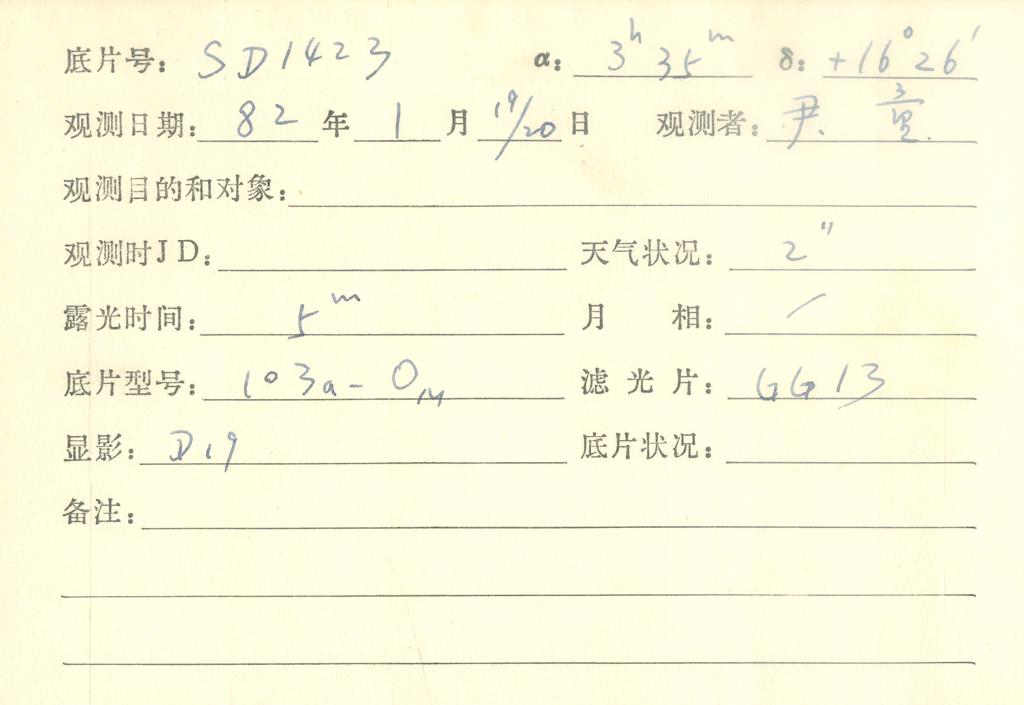 底片号: SD1423 α: 3h 35m δ: +16°26'
观测日期: 82 年 1 月 19/20 日 观测者: 尹.
观测目的和对象:
观测时JD: 天气状况: 2"
露光时间: 5m 月 相: /
底片型号: 103a-O 滤光片: GG13
显影: D19 底片状况:
备注: